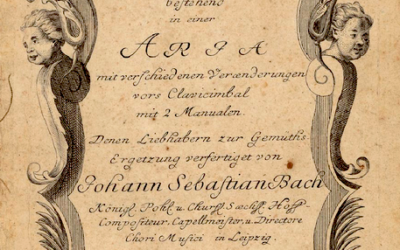 bestehend
in einer
ARIA
mit verschiedenen Verænderungen
vors Clavicimbal
mit 2 Manualen.
Denen Liebhabern zur Gemüths-
Ergetzung verfertiget von
Johann Sebastian Bach
Königl. Pohl. u. Churfl. Sæchs. Hoff-
Compositeur, Capellmeister, u. Directore
Chori Musici in Leipzig.